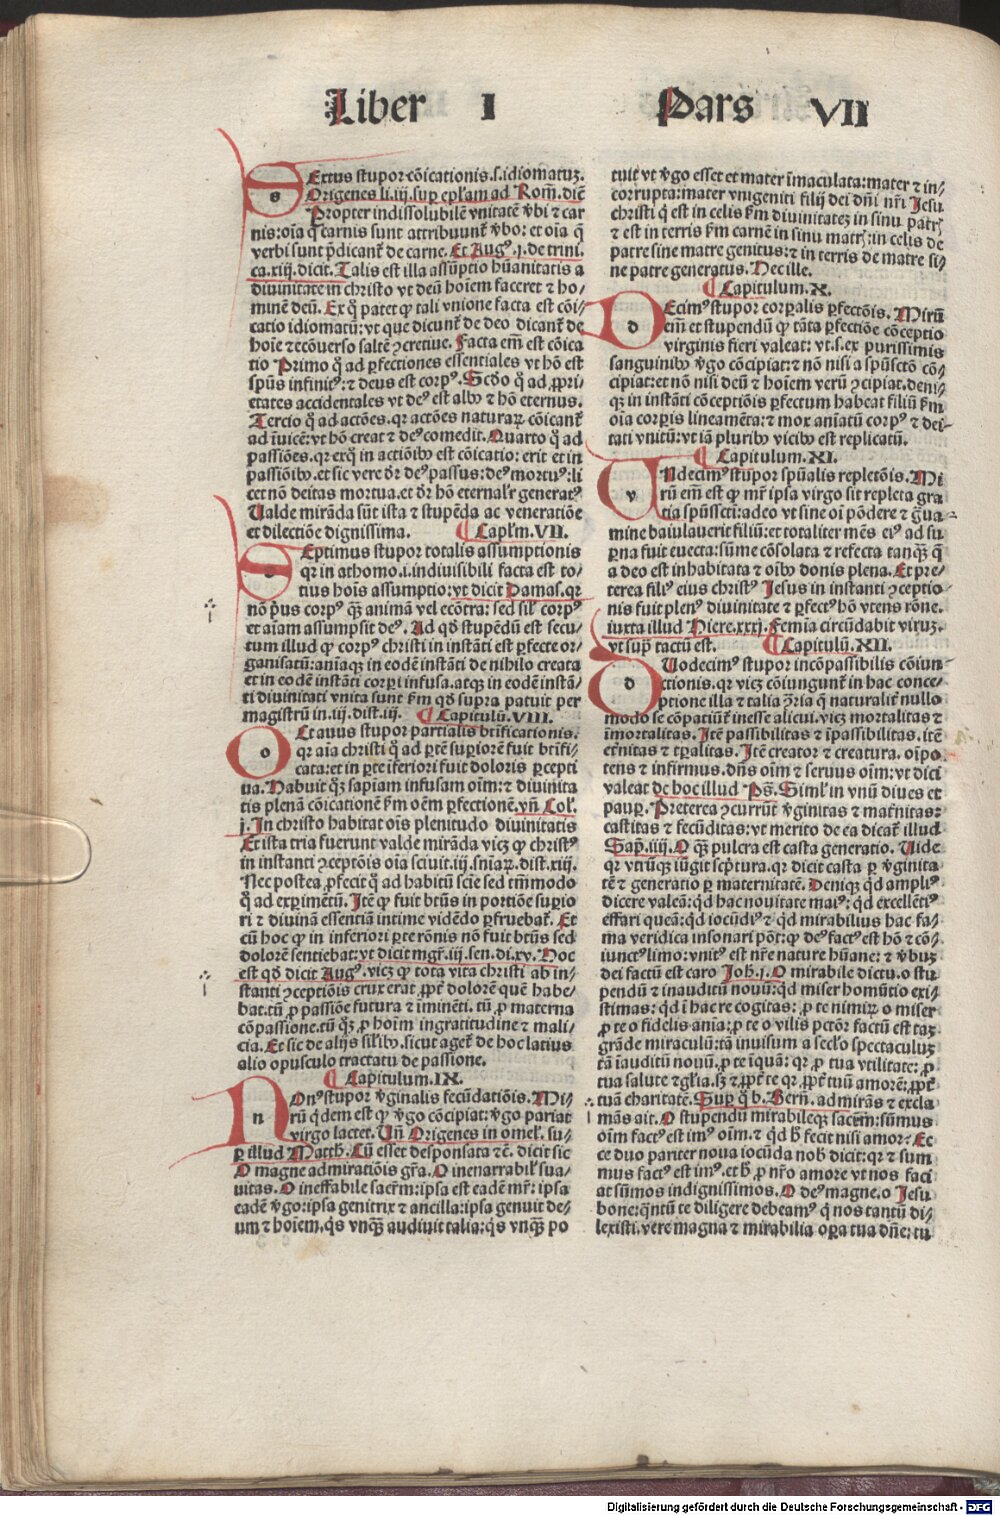 Liber I Pars VII
SExtus stupor cōicationis.s.idiomatuʒ.
Origenes li.iij.sup epl'am ad Rom̄.diē
Propter indissolubilē vnitatē v̄bi ⁊ car
nis:oīa q̄ carnis sunt attribuunt̄ v̄bo: et oīa q̄
verbi sunt p̄dicant̄ de carne. Et Augꝰ.j.de trini.
ca.xiij.dicit. Talis est illa assūptio hūanitatis a
diuinitate in christo vt deū hoīem faceret ⁊ ho⸗
minē deū. Ex q̄ patet ꝙ tali vnione facta est cōi⸗
catio idiomatū: vt que dicunt̄ de deo dicant̄ de
hoīe ⁊ ecōuerso saltē ↄcretiue. Facta em̄ est cōica
tio Primo q̄ ad ꝑfectiones essentiales vt hō est
spūs infinitꝰ: ⁊ deus est corpꝰ. Scd̄o q̄ ad ꝓpri⸗
etates accidentales vt deꝰ est albꝰ ⁊ hō eternus.
Tercio q̄ ad actōes. qꝛ actōes naturaꝝ cōicant̄
ad īuicē: vt hō creat ⁊ deꝰ comedit. Quarto q̄ ad
passiōes. qꝛ ex q̄ in actiōibꝰ est cōicatio: erit et in
passiōibꝰ. et sic vere dr̄ deꝰ passus: deꝰ mortuꝰ: li
cet non deitas mortua. et dr̄ hō eternalr̄ generatꝰ
Ualde mirāda sūt ista ⁊ stupēda ac veneratiōe
et dilectiōe dignissima. Capl'm. VII.
SEptimus stupor totalis assumptionis
qꝛ in athomo.i.indiuisibili facta est to⸗
tius hoīs assumptio: vt dicit Damas. qꝛ
nō p̄us corpꝰ q̄ꝫ animā vel ecōtra: sed sil' corpꝰ
et aīam assumpsit deꝰ. Ad qd̄ stupēdū est secu⸗
tum illud ꝙ corpꝰ christi in instāti est ꝑfecte or⸗
ganisatū: aniaqꝫ in eodē instāti de nihilo creata
et in eodē instāti corpi infusa. atqꝫ in eodē instā⸗
ti diuinitati vnita sunt ẜm qd̄ supra patuit per
magistrū in.iij.dist.iij. Capitulū. VIII.
OCtauus stupor partialis btīficationis.
qꝛ aīa christi q̄ ad ꝑtē supiorē fuit btīfi⸗
cata: et in ꝑte īferiori fuit doloris ꝑcepti
ua. Habuit qꝫ sapiam infusam oīm: ⁊ diuinita
tis plenā cōicationē ẜm oēm ꝑfectionē. vn̄ Col'.
j. In christo habitat oīs plenitudo diuinitatis
Et ista tria fuerunt valde mirāda vicꝫ ꝙ christꝰ
in instanti ↄceptōis oīa sciuit. iij. sniaꝝ. dist. xiij.
Nec postea ꝓfecit q̄ ad habitū scīe sed tm̄modo
q̄ ad expimētū. Itē ꝙ fuit btūs in portiōe supio
ri ⁊ diuinā essentiā intime vidēdo ꝑfruebat̄. Et
cū hoc ꝙ in inferiori ꝑte rōnis nō fuit btūs sed
dolorē sentiebat: vt dicit mgr̄. iij. sen. di. xv. Hoc
est qd̄ dicit Augꝰ. vicꝫ ꝙ tota vita christi ab in⸗
stanti ↄceptiōis crux erat, ꝓpt̄ dolorē quē habe⸗
bat. tū ꝓ passiōe futura ⁊ īminēti. tū ꝓ materna
cōpassione. tū qꝫ ꝓ hoīm ingratitudine ⁊ mali⸗
cia. Et sic de alijs silībꝰ. sicut aget̄ de hoc latius
alio opusculo tractatu de passione.
Capitulum. IX.
NOnꝰ stupor v̄ginalis fecūdatiōis. Mi⸗
rū q̄dem est ꝙ v̄go cōcipiat: v̄go pariat
virgo lactet. Un̄ Origenes in omel'. su⸗
ꝑ illud Matth. Cū esset desponsata ⁊c̄. dicit sic
O magne admiratiōis gr̄a. O inenarrabil' sua⸗
uitas. O ineffabile sacr̄m: ipsa est eadē mr̄: ipsa
eadē v̄go: ipsa genitrix ⁊ ancilla: ipsa genuit de⸗
um ⁊ hoīem. q̄s vnqꝫ audiuit talia: q̄s vnqꝫ po
tuit vt v̄go esset et mater īmaculata: mater ⁊ in⸗
corrupta: mater vnigeniti filij dei dn̄i nr̄i Jesu
christi q̄ est in celis ẜm diuinitateʒ in sinu patꝛ̄
⁊ est in terris ẜm carnē in sinu matꝛ̄: in celis de
patre sine matre genitus: ⁊ in terris de matre si⸗
ne patre generatus. Hec ille.
Capitulum. X.
DEcimꝰ stupor corpalis ꝑfectōis. Mirū
em̄ et stupendū ꝙ tāta ꝑfectiōe cōceptio
virginis fieri valeat: vt. s. ex purissimis
sanguinibꝰ v̄go cōcipiat: ⁊ nō nisi a spūsctō cō⸗
cipiat: et nō nisi deū ⁊ hoīem verū ↄcipiat. deni⸗
qꝫ in instāti cōceptiōis ꝑfectum habeat filiū ẜm
oīa corpis lineamēta: ⁊ mox aniatū corpꝰ ⁊ dei⸗
tati vnitū: vt iā pluribꝰ vicibꝰ est replicatū.
Capitulum. XI.
VNdecimꝰ stupor spūalis repletōis. Mi
rū em̄ est ꝙ mr̄ ipsa virgo sit repleta gra
tia spūsscti: adeo vt sine oī pōdere ⁊ g̃ua⸗
mine baiulauerit filiū: et totaliter mēs eiꝰ ad su
ꝑna fuit euecta: sūme cōsolata ⁊ refecta tanqꝫ q̄
a deo est inhabitata ⁊ oībꝰ donis plena. Et pre⸗
terea filiꝰ eius christꝰ Jesus in instanti ↄceptio⸗
nis fuit plenꝰ diuinitate ⁊ ꝑfectꝰ hō vtens rōne.
iuxta illud Hiere. xxxj. Femīa circūdabit viruʒ.
vt sup̄ tactū est. Capitulū. XII.
DUodecimꝰ stupor incōpassibilis cōiun⸗
ctionis. qꝛ vicꝫ cōiungunt̄ in hac conce⸗
ptione illa ⁊ talia ↄ̄ria q̄ naturalit̄ nullo
modo se cōpatiūt̄ inesse alicui. vicꝫ mortalitas ⁊
īmortalitas. Itē passibilitas ⁊ īpassibilitas. itē
et̄nitas ⁊ tꝑalitas. Itē creator ⁊ creatura. oīpo⸗
tens ⁊ infirmus. dn̄s oīm ⁊ seruus oīm: vt dici
valeat de hoc illud Ps̄. Siml' in vnū diues et
pauꝑ. Preterea ↄcurrūt v̄ginitas ⁊ mat̄nitas:
castitas ⁊ fecūditas: vt merito de ea dicat̄ illud
Sap̄. iiij. O q̄ꝫ pulcra est casta generatio. Uide
qꝛ vtrūqꝫ iūgit scp̄tura. qꝛ dicit casta ꝑ v̄ginita
tē ⁊ generatio ꝑ maternitatē. Deniqꝫ qd̄ ampliꝰ
dicere valeā: qd̄ hac nouitate maiꝰ: qd̄ excellētiꝰ
effari queā: qd̄ iocūdiꝰ ⁊ qd̄ mirabilius hac fa⸗
ma veridica insonari pōt: ꝙ deꝰ factꝰ est hō ⁊ cō⸗
iunctꝰ limo: vnitꝰ est nr̄e nature hūane: ⁊ v̄buʒ
dei factū est caro Joh. j. O mirabile dictu. o stu
pendū ⁊ inauditū nouū: qd̄ miser homūtio exi⸗
stimas: qd̄ ī hac re cogitas: ꝓ te nimiꝝ o miser
ꝓ te o fidelis ania: ꝓ te o vilis pctōr factū est taʒ
grāde miraculū: tā inuisum a sectlo spectaculuʒ
tā īauditū nouū. ꝓ te īquā: qꝛ ꝓ tua vtilitate: ꝓ
tua salute ⁊ gl'ia. sꝫ ⁊ ꝓpt̄ te qꝛ, ꝓpt̄ tuū amorē: ꝓpt̄
tuā charitatē. Sup q̄ b. Bern̄. admirās ⁊ excla
mās ait. O stupendū mirabileqꝫ sacr̄m: sūmus
oīm factꝰ est imꝰ oīm. ⁊ qd̄ h̄ fecit nisi amor? Ec
ce duo pariter noua iocūda nob̄ dicit: qꝛ ⁊ sum
mus factꝰ est imꝰ. et h̄ ꝓ nr̄o amore vt nos faci
at sūmos indignissimos. O deꝰ magne. o Jesu
bone: q̄ntū te diligere debeamꝰ q̄ nos tantū di⸗
lexisti. vere magna ⁊ mirabilia oꝑa tua dn̄e: tu
Digitalisierung gefördert durch die Deutsche Forschungsgemeinschaft - DFG